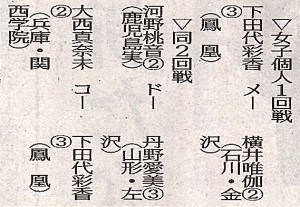 ▽女子個人1回戦
下田代彩香 メー 横井唯伽②
③ (石川・金
(鳳凰) 沢)
▽同2回戦
河野桃音② ドー 丹野愛美③
(鹿児島美) (山形・左
沢)
大西真奈未 コー 下田代彩香
② ③
(兵庫・関 (鳳凰)
西学院)